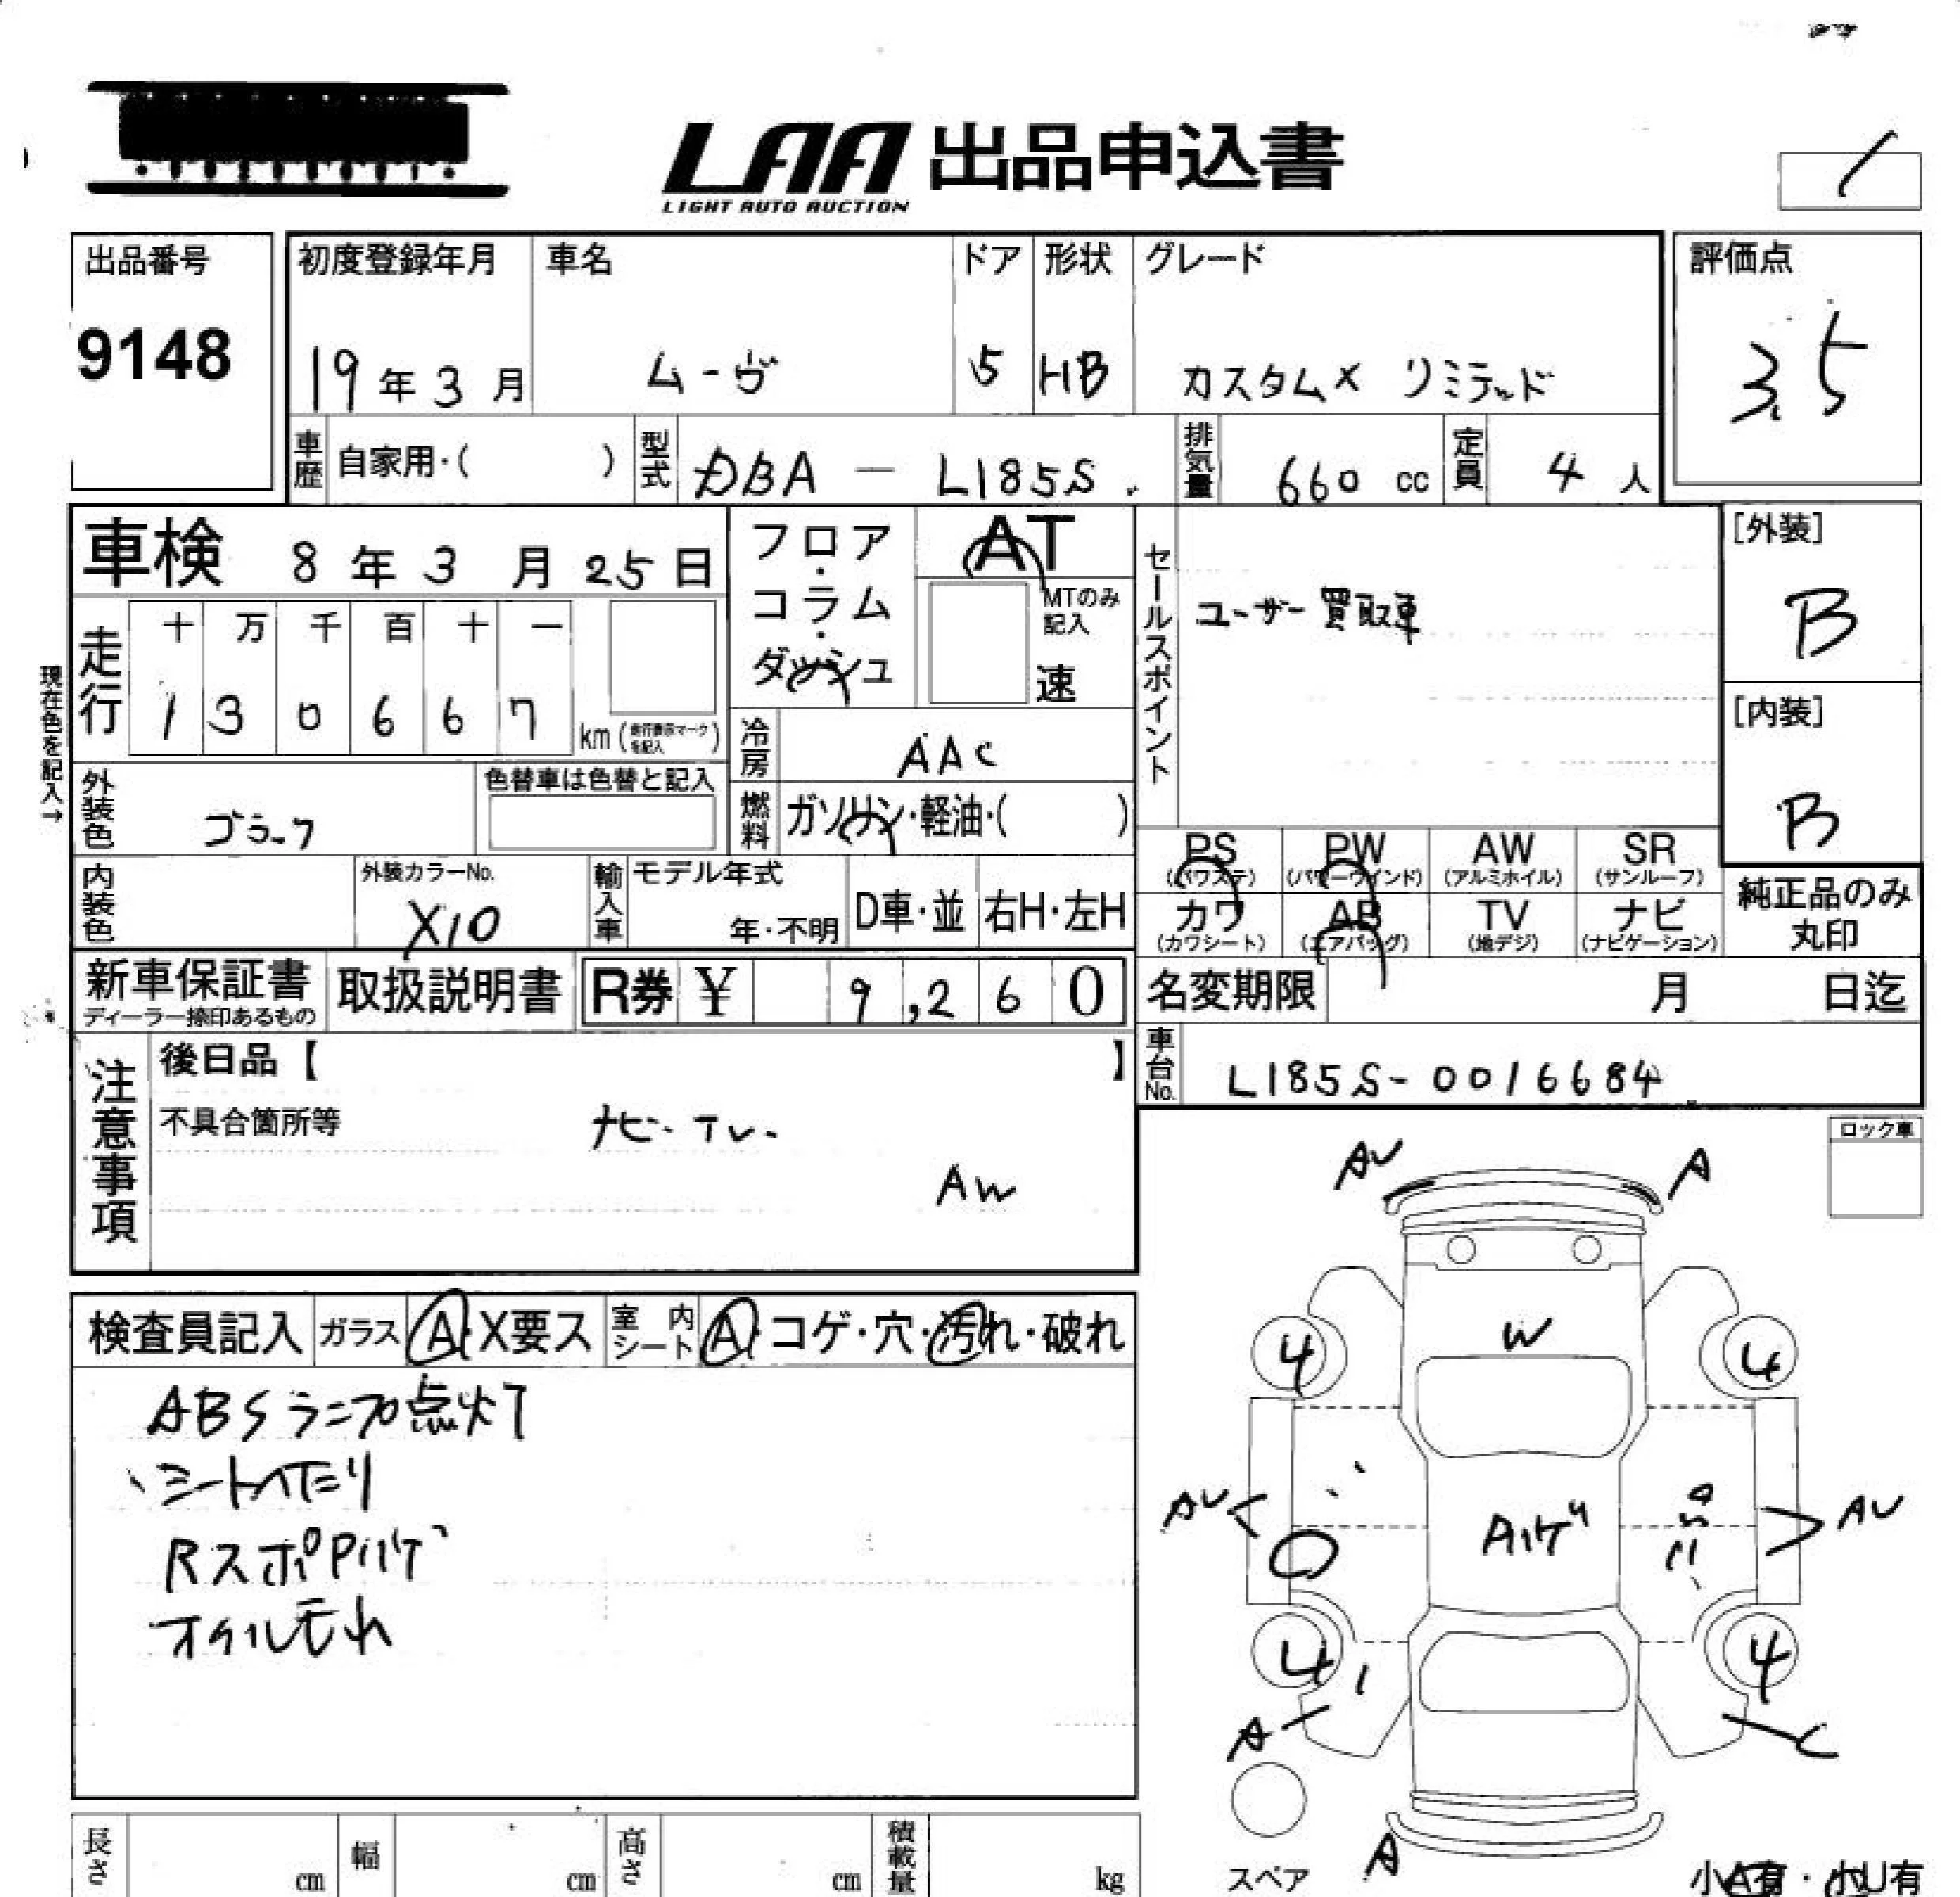 LAA 出品申込書
LIGHT AUTO AUCTION
出品番号
9148
初度登録年月
19年3月
車名
ムーヴ
ドア
5
形状
HB
グレード
カスタムX リミテッド
評価点
3.5
車歴 自家用・( )
型式 DBA - L185S
排気量 660 cc
定員 4人
車検 8年3月25日
フロア・コラム・ダッシュ
AT
MTのみ記入
速
セールスポイント
ユーザー買取車
[外装]
B
[内装]
B
現在色を記入→
走行
十 万 千 百 十 一
1 3 0 6 6 7
km (走行表示マークを記入)
冷房 AAC
外装色 ブラック
色替車は色替と記入
燃料 ガソリン・軽油・( )
PS (パワステ)
PW (パワーウインド)
AW (アルミホイル)
SR (サンルーフ)
カワ (カワシート)
AB (エアバッグ)
TV (地デジ)
ナビ (ナビゲーション)
純正品のみ丸印
内装色
外装カラーNo.
X10
輸入車
モデル年式
年・不明
D車・並
右H・左H
新車保証書
ディーラー捺印あるもの
取扱説明書
R券 ¥ 9,260
名変期限 月 日迄
車台No. L185S-0016684
注意事項
後日品【 】
不具合箇所等
ナビ・TV・
AW
ロック車
検査員記入
ガラス A・X要ス
室内シート A・コゲ・穴・汚れ・破れ
ABSランプ点灯
シートヘたり
RスポPハゲ
オイルモれ
AU
A
W
4
4
AU
AU
Aハゲ
4
4
A
C
A
スペア
小A有・小U有
長さ cm
幅 cm
高さ cm
積載量 kg